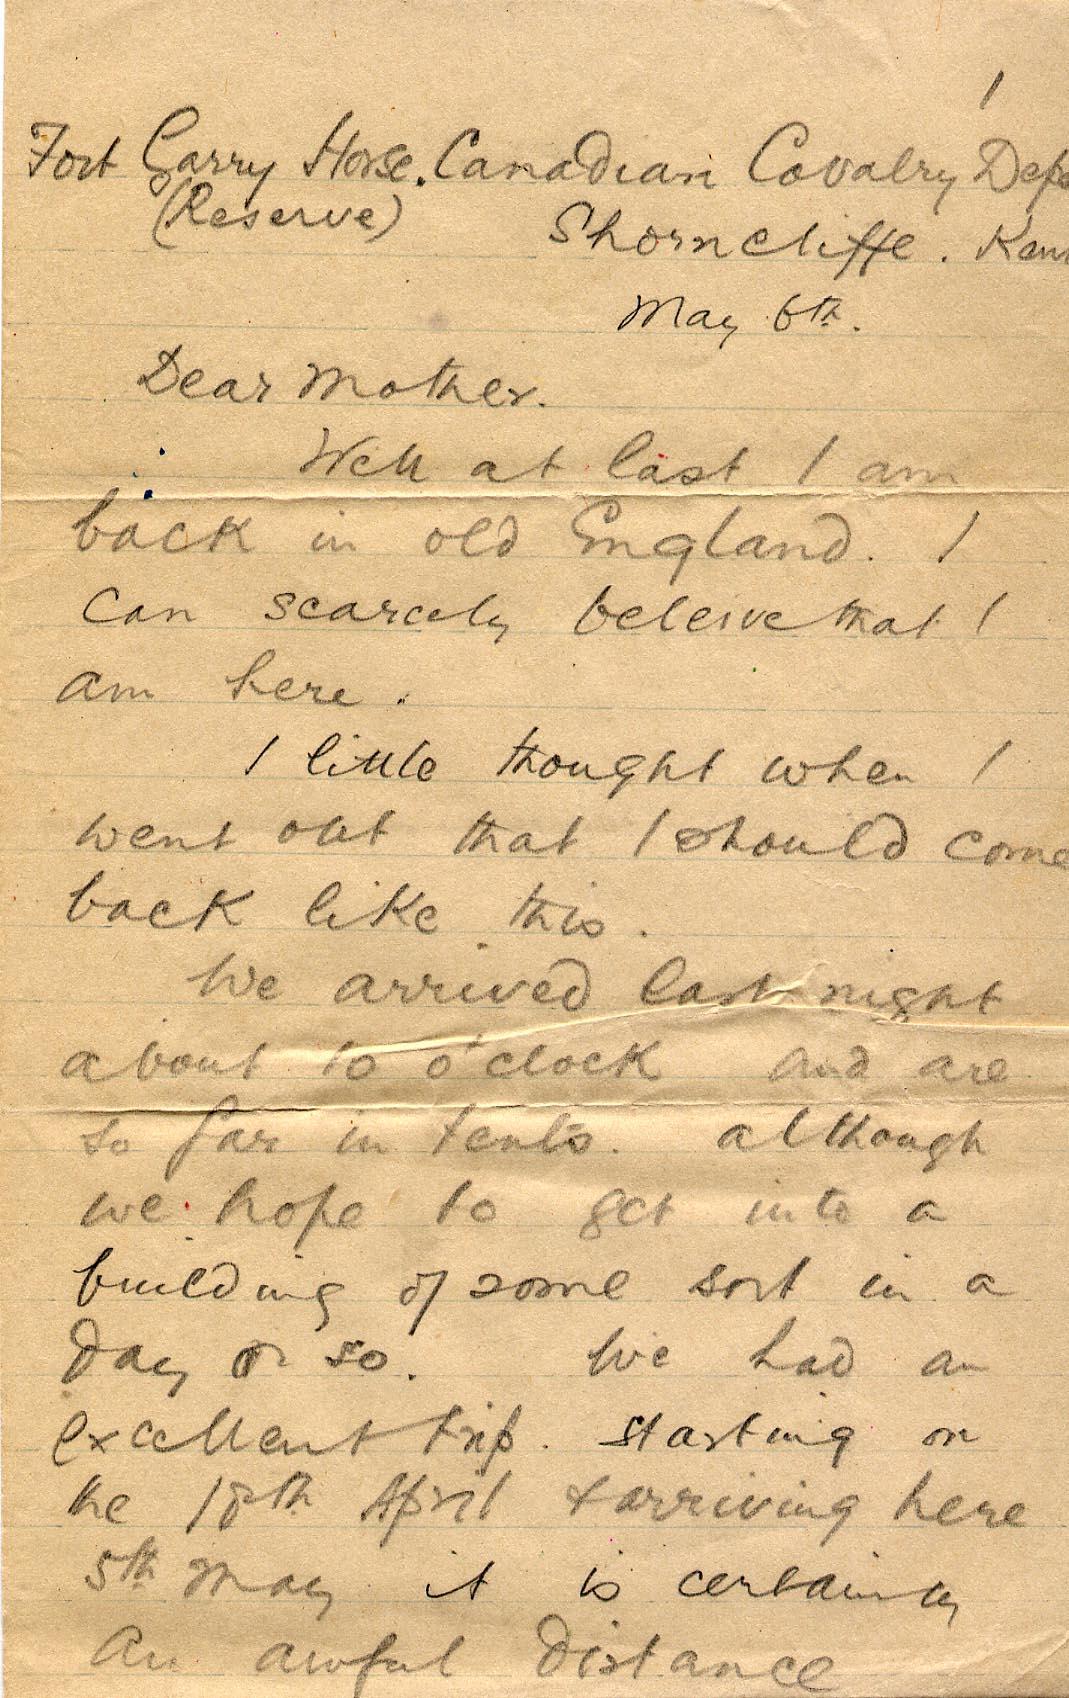 1
Fort Garry Horse. Canadian Cavalry Depo
(Reserve)
Shorncliffe. Kent
May 6th.
Dear Mother.
Well at last I am
back in old England. I
can scarcely beleive that I
am here.
I little thought when I
went out that I should come
back like this.
We arrived last night
about 10 o'clock and are
so far in tents. although
we hope to get into a
building of some sort in a
day or so. We had an
excellent trip. starting on
the 18th April & arriving here
5th May it is certainly
An awful distance